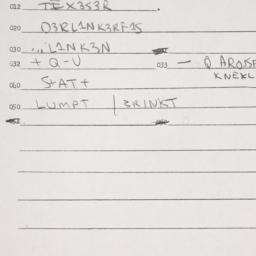 012 TEX3S3R .
020 D3RL1NK3RF1S
030 ... L1NK3N
032 + Q-U 033 — Q AROSF
KNEXL
060 StAT+
050 LUMPT | BRINKT